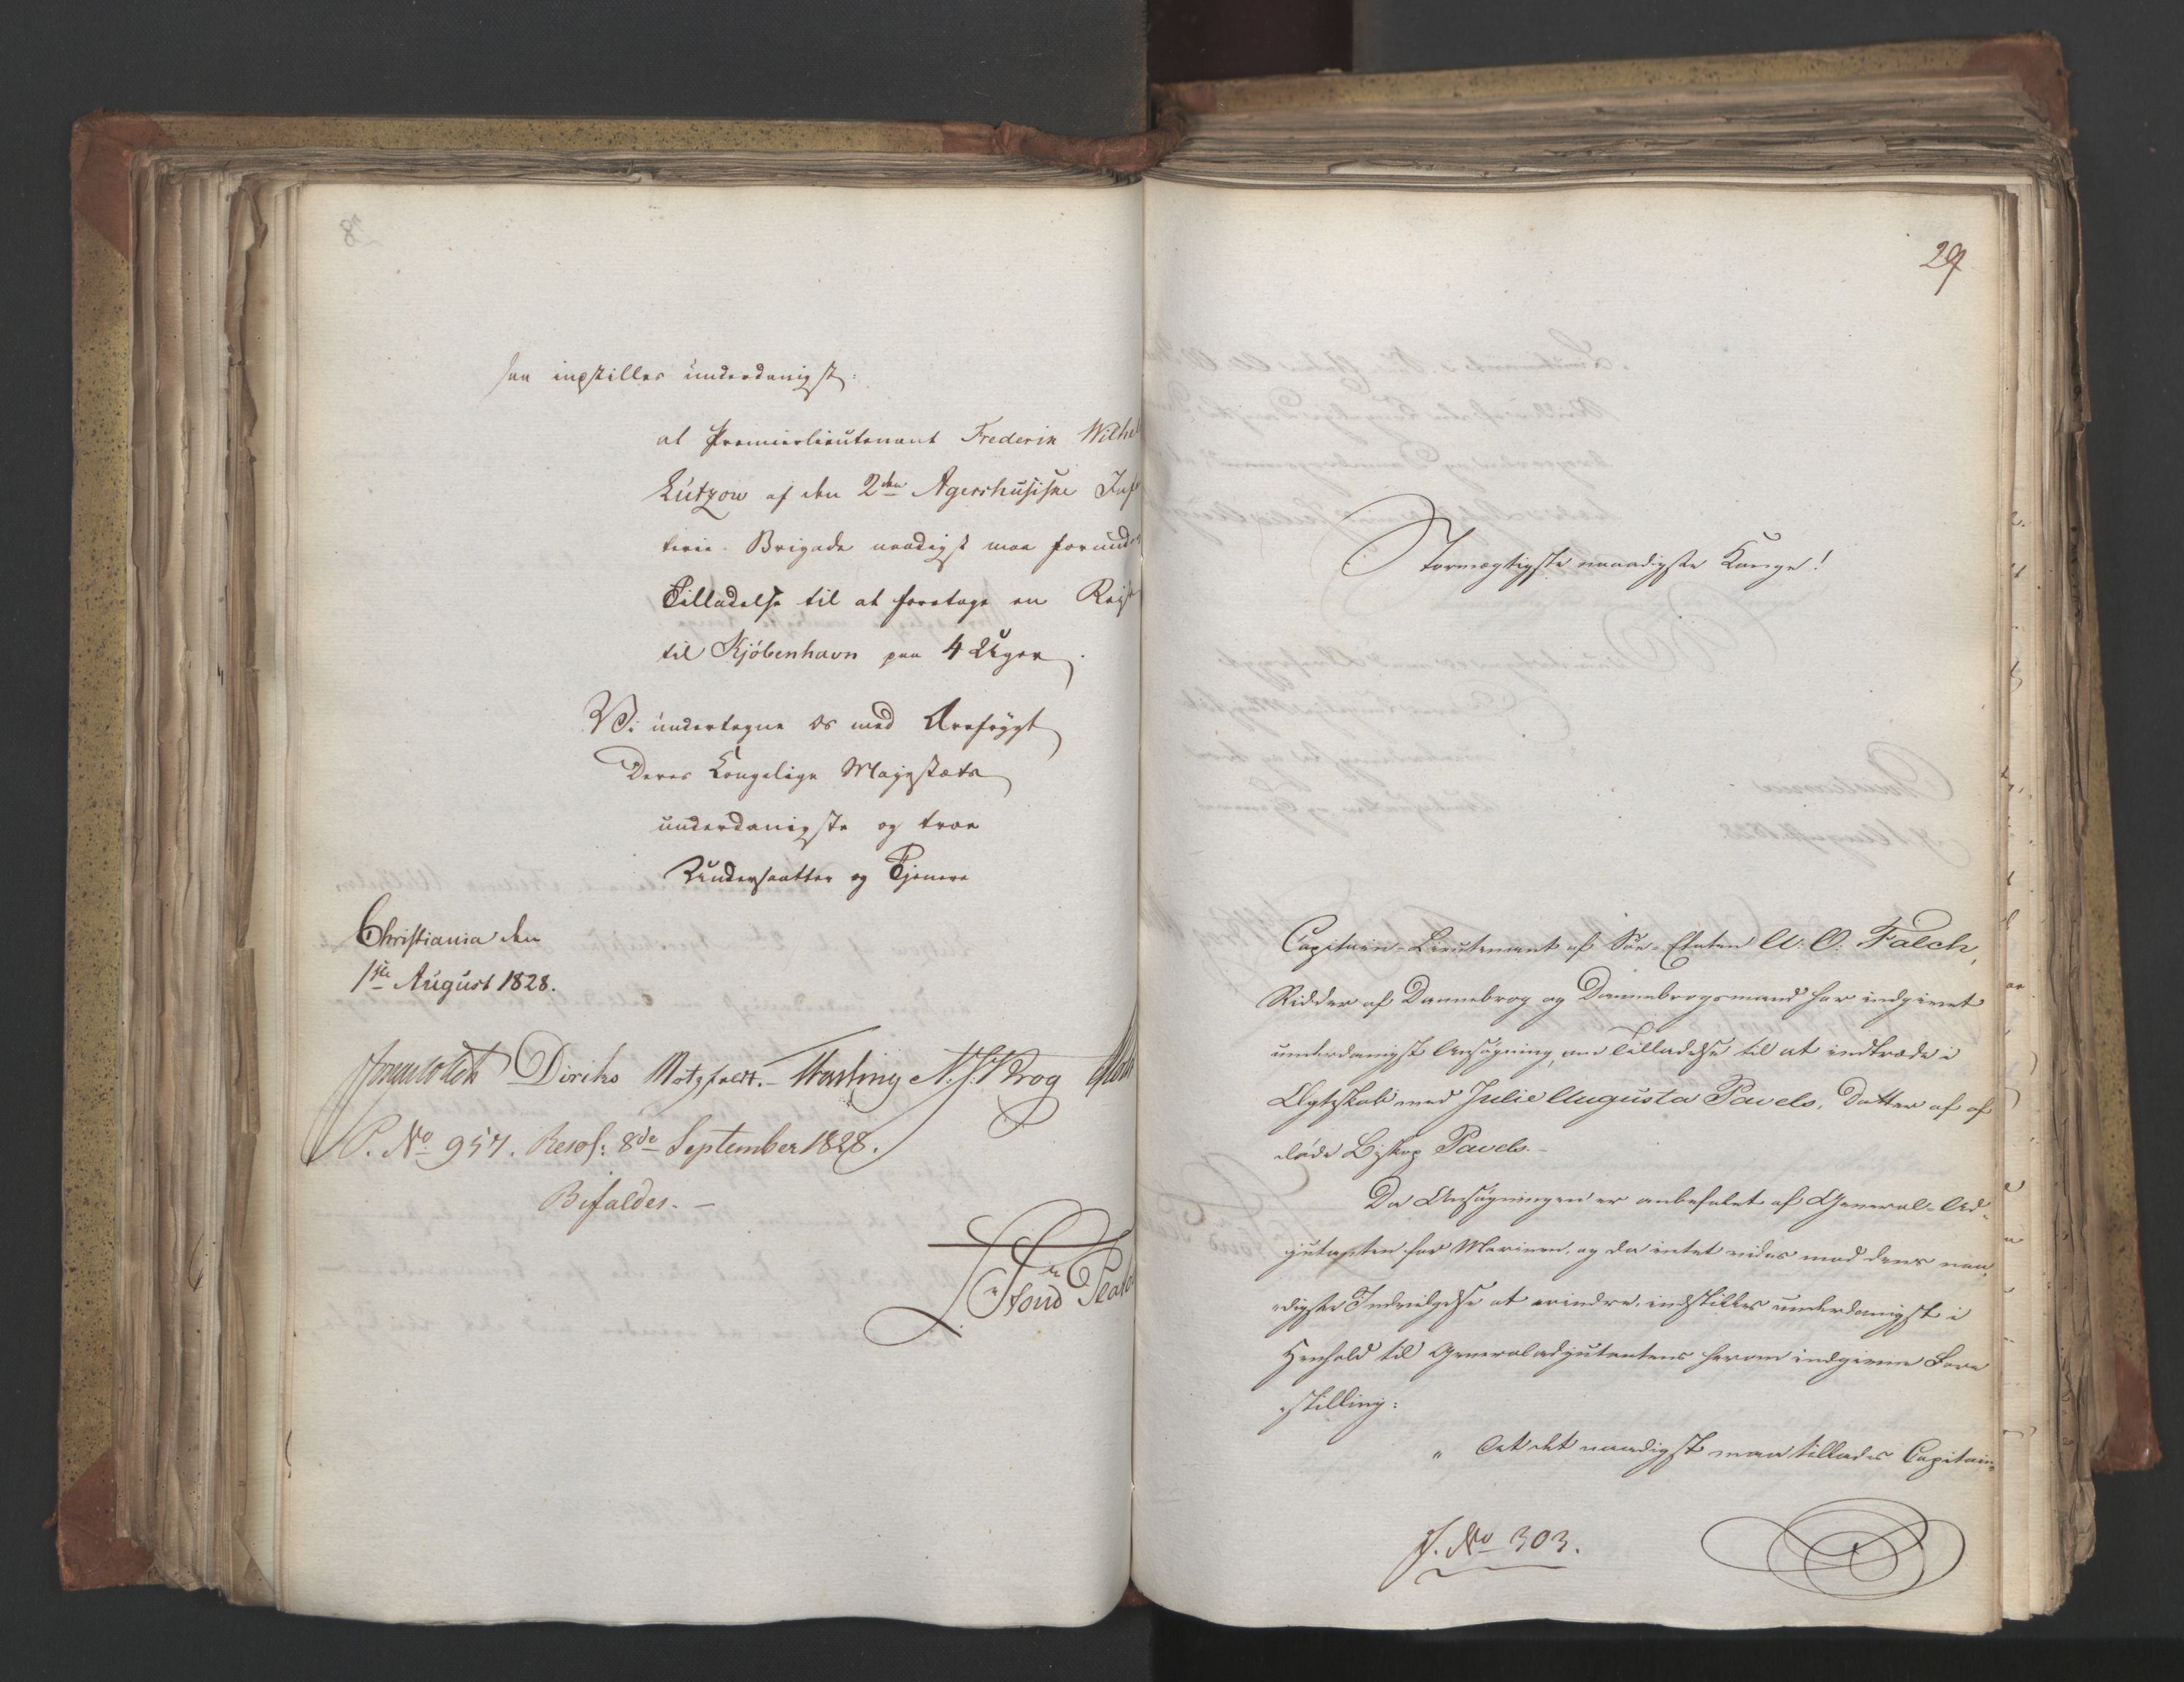 saa indstilles underdanigst:
at Premierlieutenant Frederik Wilhel
Lützow af den 2den Agershusiske Inf
terie-Brigade naadigst maa forundes
Tilladelse til at foretage en Reise
til Kjöbenhavn paa 4 Uger.
Vi undertegne os med Ærefrygt
Deres Kongelige Majestæts
underdanigste og troe
Undersaatter og Tjenere
Christiania den
1ste August 1828.
Diriks Motzfeldt. N. J. Krog
P. No 957. Resol: 8de September 1828.
Bifaldes. -
29
Stormægtigste naadigste Konge!
Capitain-Lieutenant af Søe-Etaten U: O: Falch,
Ridder af Dannebrog og Dannebrogsmand har indgivet
underdanigst Ansøgning om Tilladelse til at indtræde i
Ægteskab med Julie Augusta Pavels, Datter af af
døde Biskop Pavels. -
Da Ansøgningen er anbefalet af General-Ad-
jutanten for Marinen, og da intet vides mod dens naa-
digste Indvilgelse at erindre, indstilles underdanigst i
Henhold til Generaladjutantens herom indgivne Fore
stilling:
" At det naadigst maa tillades Capitain-
J. No 303.